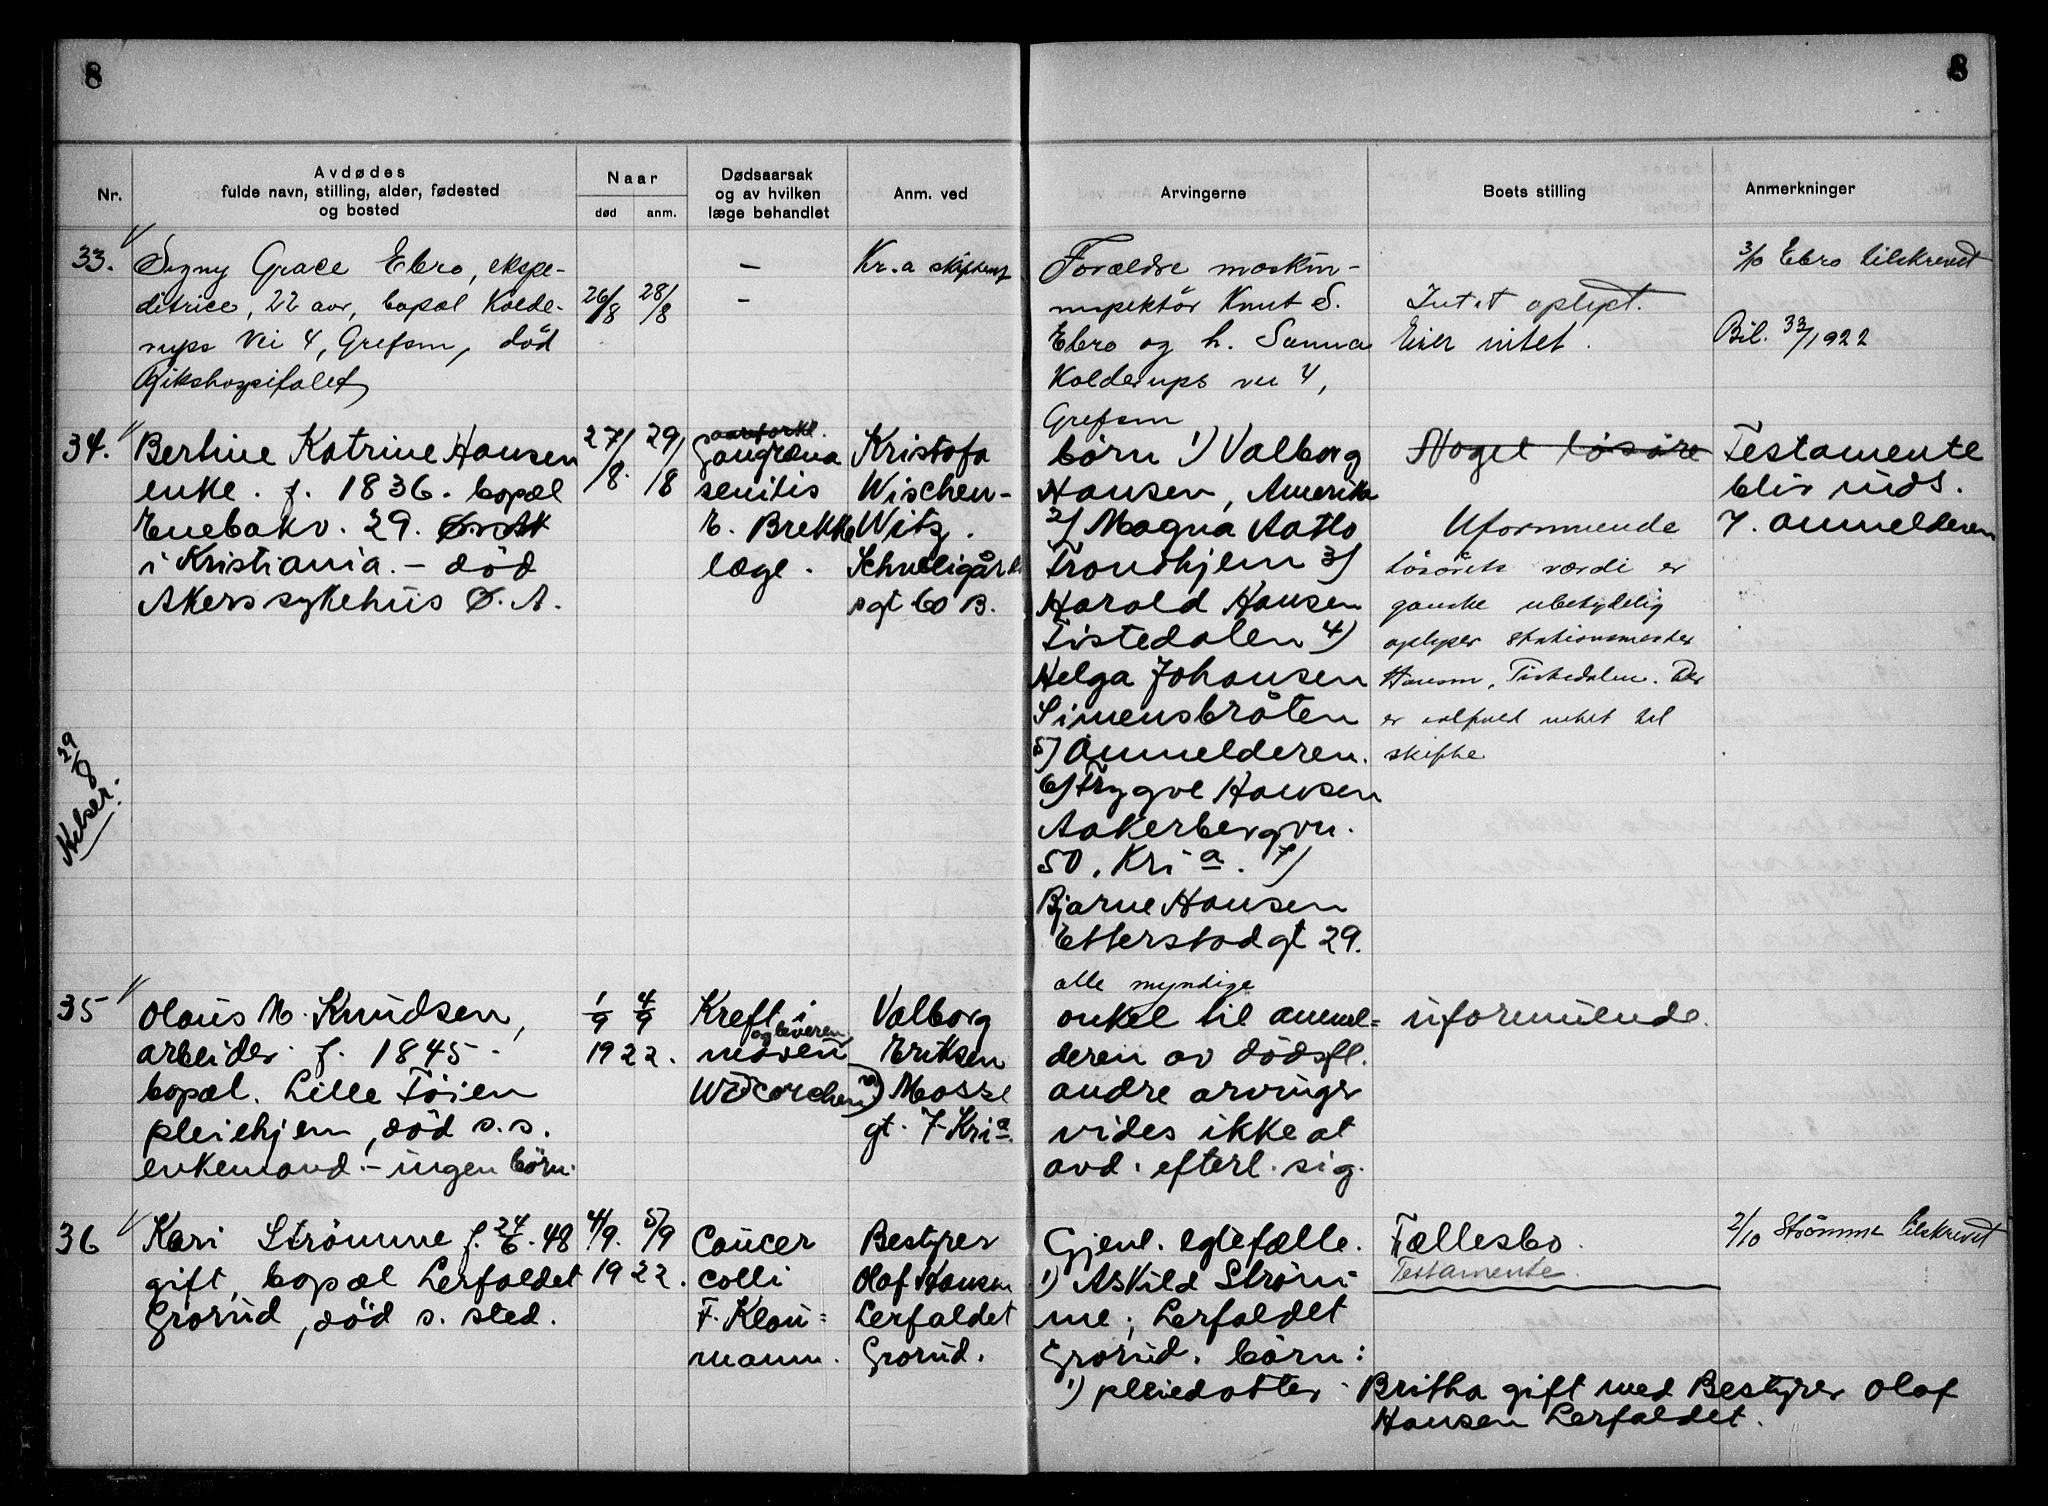 8
8
Nr.
Avdødes
fulde navn, stilling, alder, fødested
og bosted
Naar
død
anm.
Dødsaarsak
og av hvilken
læge behandlet
Anm. ved
Arvingerne
Boets stilling
Anmerkninger
33.
Signy Grace Ebro, ekspe-
ditrice, 22 aar, bopæl Kolde-
rups Vei 4, Grefsen, död
Rikshospitalet
26/8
28/8
—
—
Kr.a skifteret
Forældre maskin-
inspektör Knut S.
Ebro og h. Sanna
Kolderups vei 4,
Grefsen
Intet oplyst.
Eier intet.
3/10 Ebro tilskrevet
Bil. 33/1922
34.
Bertine Katrine Hansen
enke. f. 1836. bopæl
Enebakv. 29. Ø. Ak
i Kristiania. – död
Akers sykehus Ø. A.
27/8.
29/8
aareforkl.
Gangræna
senilis
E. Brekke
læge.
Kristofa
Wischen-
Witz.
Schweigårds
gt 60 B.
börn 1) Valborg
Hansen, Amerika
2) Magna Aatto
Trondhjem 3)
Harald Hansen
Tistedalen 4)
Helga Johansen
Simensbråten
5) Anmelderen.
6) Trygve Hansen
Aakerbergvn.
50. Kria. 7)
Bjarne Hansen
Etterstadgt 29.
alle myndige
Noget lösöre
Uformuende
Lösörets værdi er
ganske ubetydelig
oplyser stationsmester
Hansen, Tistedalen. Der
er ialfald intet til
skifte
Testamente
blir inds.
7. anmelderen
29/8
Kilser.
35
Olaus M. Knudsen,
arbeider f. 1845.
bopæl. Lille Töien
pleiehjem, död s. s.
enkemand. – ingen börn.
1/9
4/9
1922.
Kreft i
og leveren
maven
Valborg
Eriksen
Mosse
gt. 7 Kria.
onkel til anmel=
deren av dödsfl.
andre arvinger
vides ikke at
avd. efterl. sig.
uformuende.
36
Kari Strömme f. 24/6.48
gift, bopæl Lerfaldet
Grorud, död s. sted.
4/9.
5/9
1922.
Cancer
colli
F. Klou=
mann.
Bestyrer
Olaf Hansen
Lerfaldet
Grorud.
Gjenl. egtefælle.
1) Askild Ström-
me, Lerfaldet
Grorud. börn:
1) pleiedatter - Britha gift med Bestyrer Olaf
Hansen Lerfaldet.
Fællesbo.
Testamente.
2/10 Strömme tilskrevet